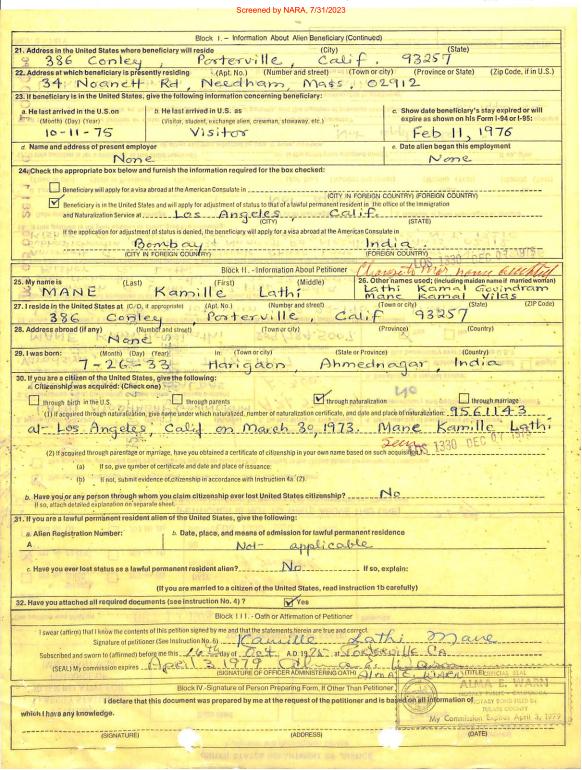 Screened by NARA, 7/31/2023
Block I. – Information About Alien Beneficiary (Continued)
21. Address in the United States where beneficiary will reside (City) (State)
386 Conley, Porterville, Calif. 93257
22. Address at which beneficiary is presently residing (Apt. No.) (Number and street) (Town or city) (Province or State) (Zip Code, if in U.S.)
34 Noanett Rd, Needham, Mass, 02912
23. If beneficiary is in the United States, give the following information concerning beneficiary:
a. He last arrived in the U.S. on (Month) (Day) (Year) 10-11-75
b. He last arrived in U.S. as (Visitor, student, exchange alien, crewman, stowaway, etc.) Visitor
c. Show date beneficiary's stay expired or will expire as shown on his Form I-94 or I-95: Feb 11, 1976
d. Name and address of present employer None
e. Date alien began this employment None
24. Check the appropriate box below and furnish the information required for the box checked:
Beneficiary will apply for a visa abroad at the American Consulate in
(CITY IN FOREIGN COUNTRY) (FOREIGN COUNTRY)
Beneficiary is in the United States and will apply for adjustment of status to that of a lawful permanent resident in the office of the Immigration
and Naturalization Service at Los Angeles, Calif.
(CITY) (STATE)
If the application for adjustment of status is denied, the beneficiary will apply for a visa abroad at the American Consulate in
Bombay India.
(CITY IN FOREIGN COUNTRY) (FOREIGN COUNTRY)
LOS 1330 DEC 07 1975
Block II. -Information About Petitioner
25. My name is (Last) (First) (Middle)
MANE Kamille Lathi
26. Other names used; (including maiden name if married woman)
Lathi Kamal Govindram
Mane Kamal Vilas
27. I reside in the United States at (C/O, if appropriate) (Apt. No.) (Number and street) (Town or city) (State) (ZIP Code)
386 Conley, Porterville, Calif 93257
28. Address abroad (if any) (Number and street) (Town or city) (Province) (Country)
None
29. I was born: (Month) (Day) (Year) In: (Town or city) (State or Province) (Country)
7-26-33 Harigaon, Ahmednagar, India
30. If you are a citizen of the United States, give the following:
a. Citizenship was acquired: (Check one)
through birth in the U.S. through parents through naturalization through marriage
(1) If acquired through naturalization, give name under which naturalized, number of naturalization certificate, and date and place of naturalization: 9561143
at- Los Angeles, Calif on March 30, 1973. Mane Kamille Lathi
seen LOS 1330 DEC 07 1975
(2) If acquired through parentage or marriage, have you obtained a certificate of citizenship in your own name based on such acquisition
(a) If so, give number of certificate and date and place of issuance:
(b) If not, submit evidence of citizenship in accordance with Instruction 4a (2).
b. Have you or any person through whom you claim citizenship ever lost United States citizenship? No
If so, attach detailed explanation on separate sheet.
31. If you are a lawful permanent resident alien of the United States, give the following:
a. Alien Registration Number: b. Date, place, and means of admission for lawful permanent residence
A Not- applicable
c. Have you ever lost status as a lawful permanent resident alien? No If so, explain:
(If you are married to a citizen of the United States, read instruction 1b carefully)
32. Have you attached all required documents (see instruction No. 4) ? Yes
Block III. -Oath or Affirmation of Petitioner
I swear (affirm) that I know the contents of this petition signed by me and that the statements herein are true and correct.
Signature of petitioner (See Instruction No. 6) Kamille Lathi Mane
Subscribed and sworn to (affirmed) before me this 16th day of Oct A.D. 1975 at Porterville CA
(SEAL) My commission expires April 3 1979
(SIGNATURE OF OFFICER ADMINISTERING OATH) ALMA E. WARN (TITLE)
OFFICIAL SEAL
ALMA E. WARN
NOTARY PUBLIC - CALIFORNIA
NOTARY BOND FILED IN
TULARE COUNTY
My Commission Expires April 3, 1979
Block IV.-Signature of Person Preparing Form, If Other Than Petitioner
I declare that this document was prepared by me at the request of the petitioner and is based on all information of
which I have any knowledge.
(SIGNATURE) (ADDRESS) (DATE)